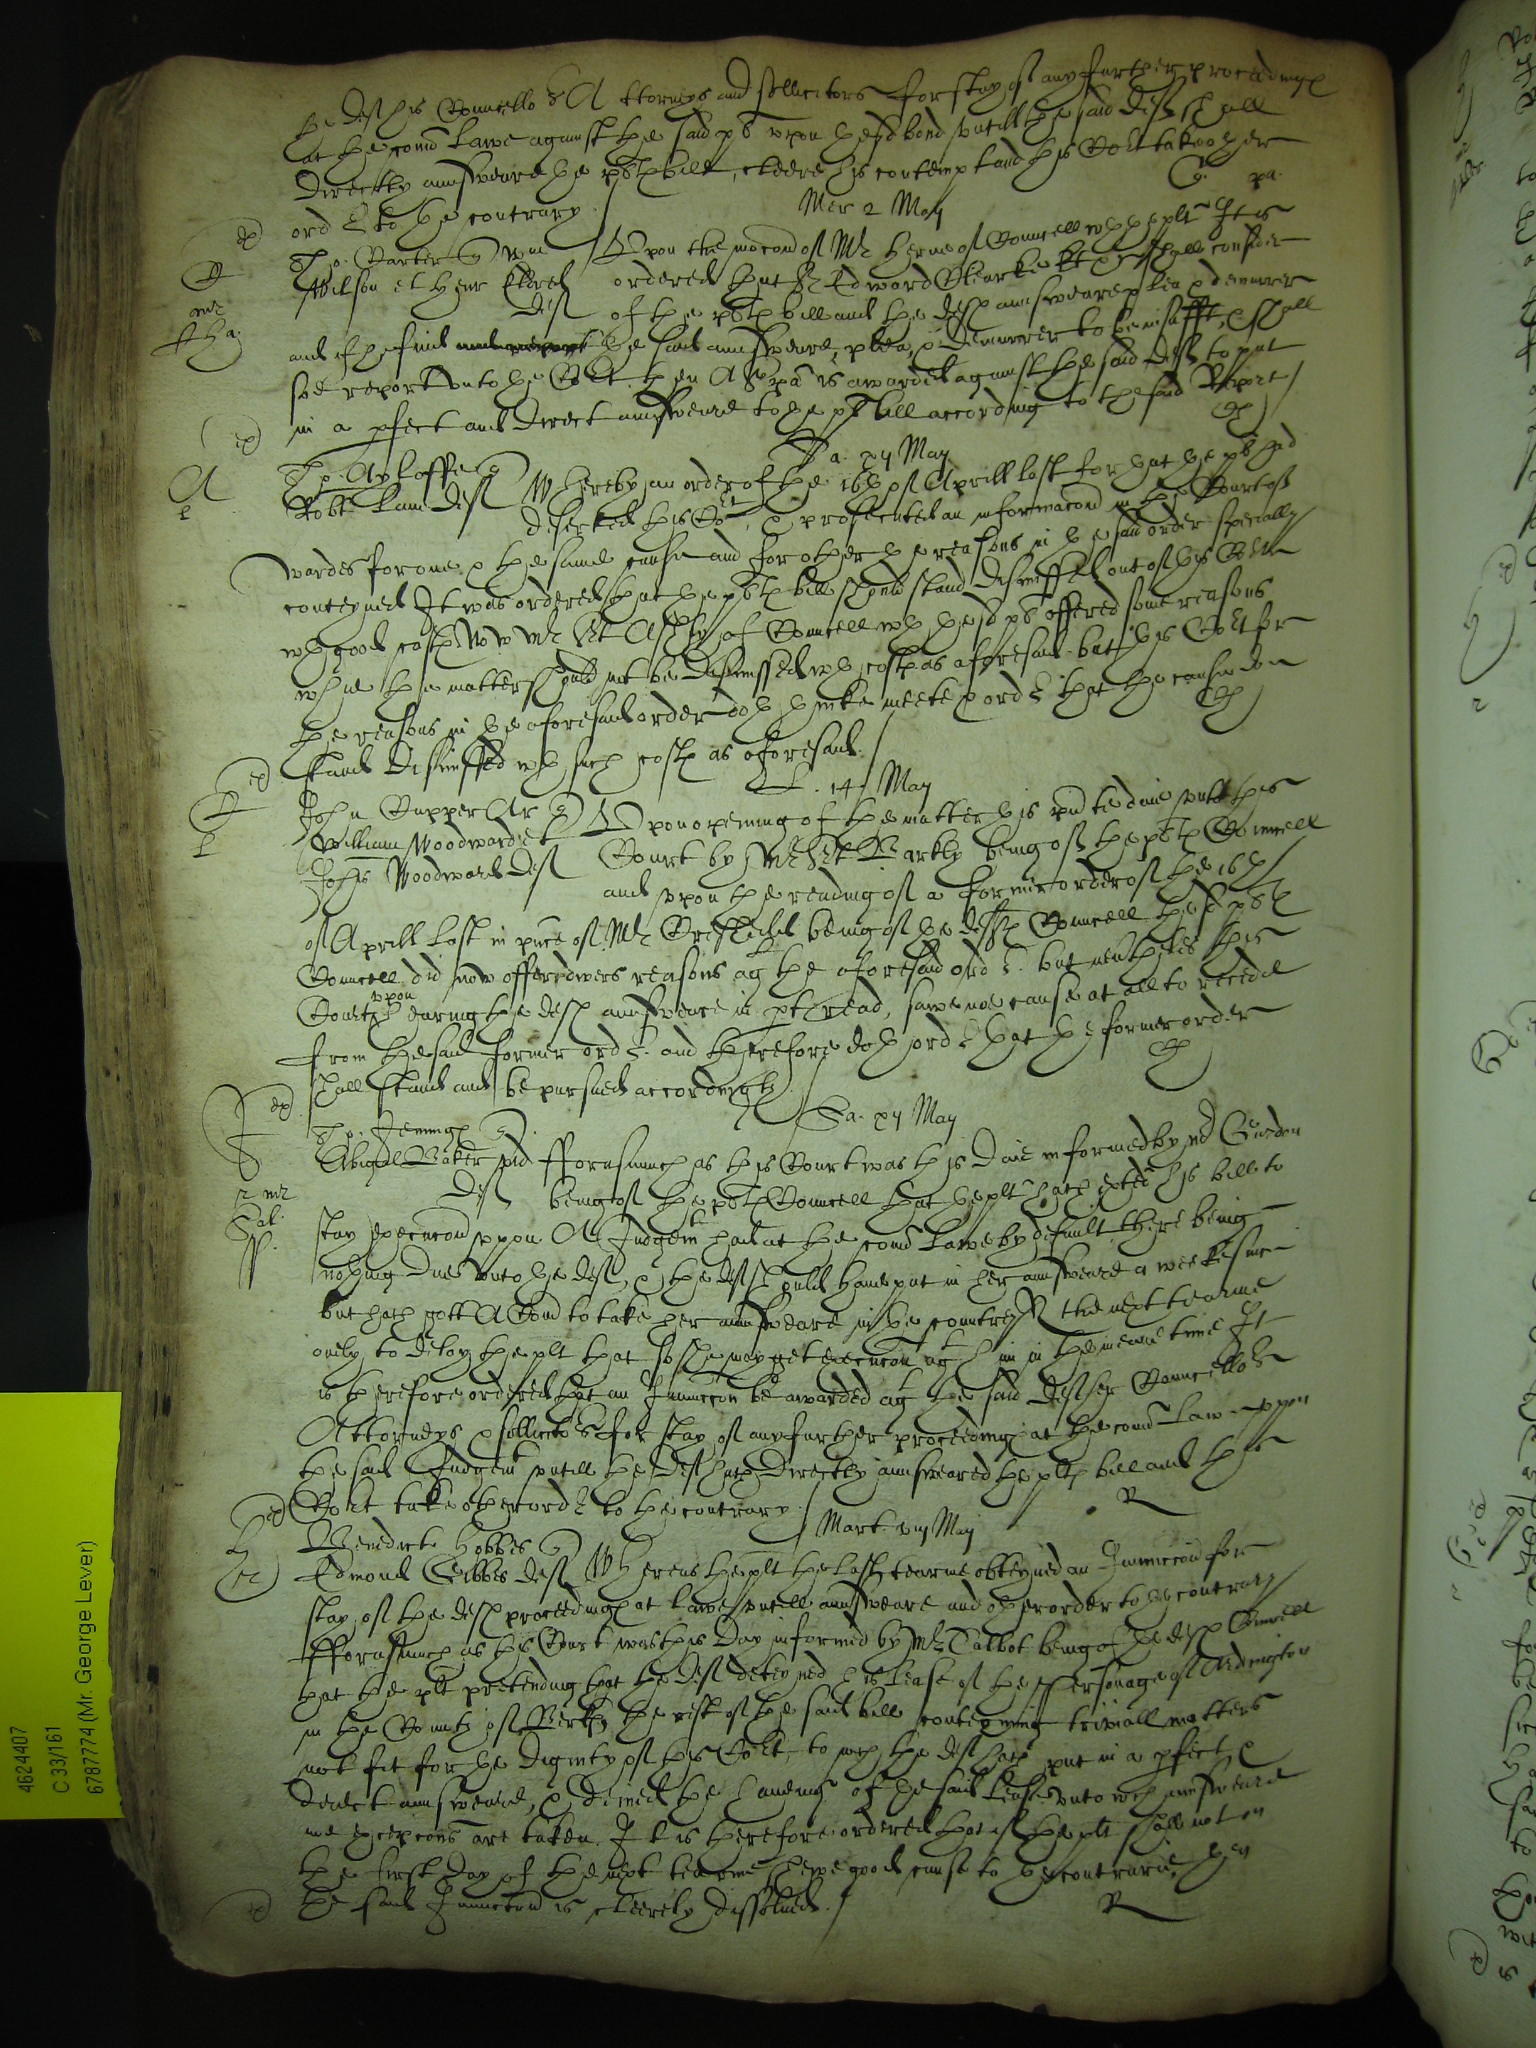 the deft his Councello & Attorneys and sollicitors for stay of any further proceedings
at the comon Lawe against the said pl upon the sd bond untill the said deft shall
directly aunsweare the plts bill, cleere his contempt and this Cort take other
ord to the contrary /
Mer 2 May
Tho: Carter q Wm
Wilson et Henr def
Upon the mocon of Mr Herne of Councell wth the plt It is
ordered that Sr Edward Clearke kt shall consider
of the plts bill and the defts aunsweare plea & demurrer
and if he find the said aunsweare, plea & demurrer to be insufft, & shall
soe report unto the Cort then A spa is awarded against the said deft to put
in a pfect and direct aunsweare to the plts bill according to the said Report /
Sa. xij May
Tho. Ayloffe q
Robt Lane deft
Whereby an order of the 16th of Aprill last for that the pl had
deserted this Cort, & prosecuted an informacon in the Court of
wardes for one & the same cause and for other the reasons in the said order specially
conteyned It was ordered that the plts bill should stand dismissed out of this Cort
wth good costs Now Mr Ashly of Councell wth the sd pl offered some reasons
whie the matter should not be dismissed wth costs as aforesaid but this Cort for
the reasons in the aforesaid order doth thinke meete & ord that the cause doe
stand dismissed wth such costs as aforesaid.
L. 14 May
John Tupper Ar q
William Woodward et
Johis Woodward deft
Upon opening of the matter this pnte daie unto this
Court by Mr Barkly being of the plts Councell
and upon the reading of a former order of the 16th
of Aprill last in pnce of Mr being of the defts Councell the sd plts
Councell did now offer divers reasons agt the aforesaid ord. but neverthelesse this
Court upon hearing the defts aunsweare in pt read, sawe noe cause at all to recede
from the said former ord. and therefore doth ord that the former order
shall stand and be pursued accordingly /
Sa. xij May
Tho. Jennings q
Abigal Baker vid
deft
Fforasmuch as this Court was this Daie informed by Mr
being of the plts Councell that the plt hath exhted his bill to
stay execucon uppon A Judgemt had at the comon Lawe by default there being
nothing due unto the deft, & the deft should have put in her aunsweare a weeke since
but hath gott A Comd to take her aunsweare in the country the next tearme
only to delay the plt that so she may get execucon agt him in the meane time It
is therefore ordered that an Iniuncon be awarded agt the said deft her Councello &
Attorneys & sollicitors for stay of any further proceedings at the comon Law uppon
the said Judgemt untill the deft hath directly aunsweared the plts bill and this
Cort take other ord to the contrary /
R
Mart. viij May
Benedict Hobbes q
Edmond Gibbes deft
Whereas the plt the last tearme obteyned an Iniuncon for
stay of the defts proceedings at Lawe untill aunsweare and other order to the contrary
Fforasmuch as this Court was this Day informed by Mr Talbot being of the defts Councell
that the plt pretending that the deft deteyned his lease of the Personage of Ardington
in the County of Berks the rest of the said bill conteyning triviall matters
not fit for the dignity of this Cort, to wch the deft hath put in a pfect &
direct aunsweare, & denied the haveing of the said Lease unto wch aunsweare
noe excepcons are taken. It is therefore ordered that if the plt shall not on
the first day of the next tearme shewe good cause to the contrarie, then
the said Iniuncon is cleerely dissolved. /
R
4624407
C 33/161
6787774 (Mr. George Lever)